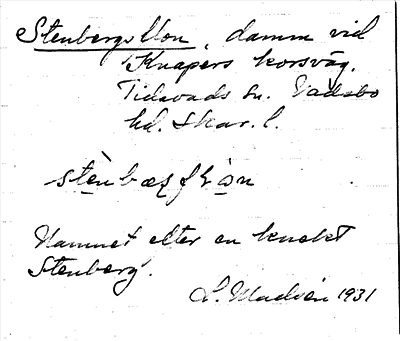 Stenbergs Kon, damm vid
Knapers korsväg.
Tidavads sn. Vadsbo
hd. Skar. l.
Namnet efter en knekt
Stenberg.
1931